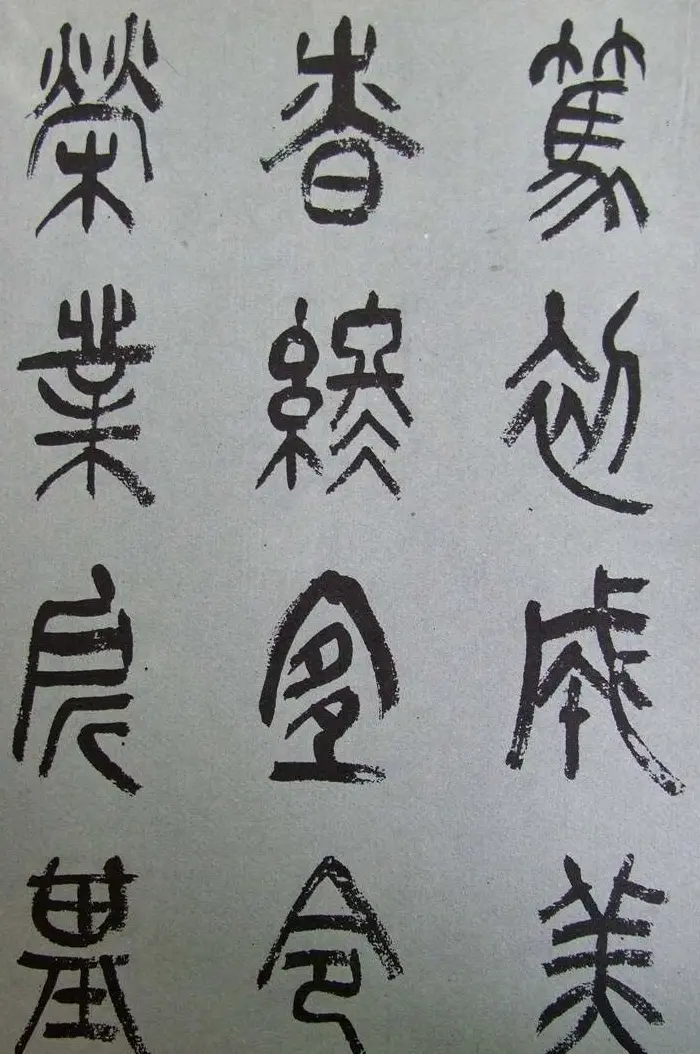 篤初誠美
慎終宜令
榮業所基